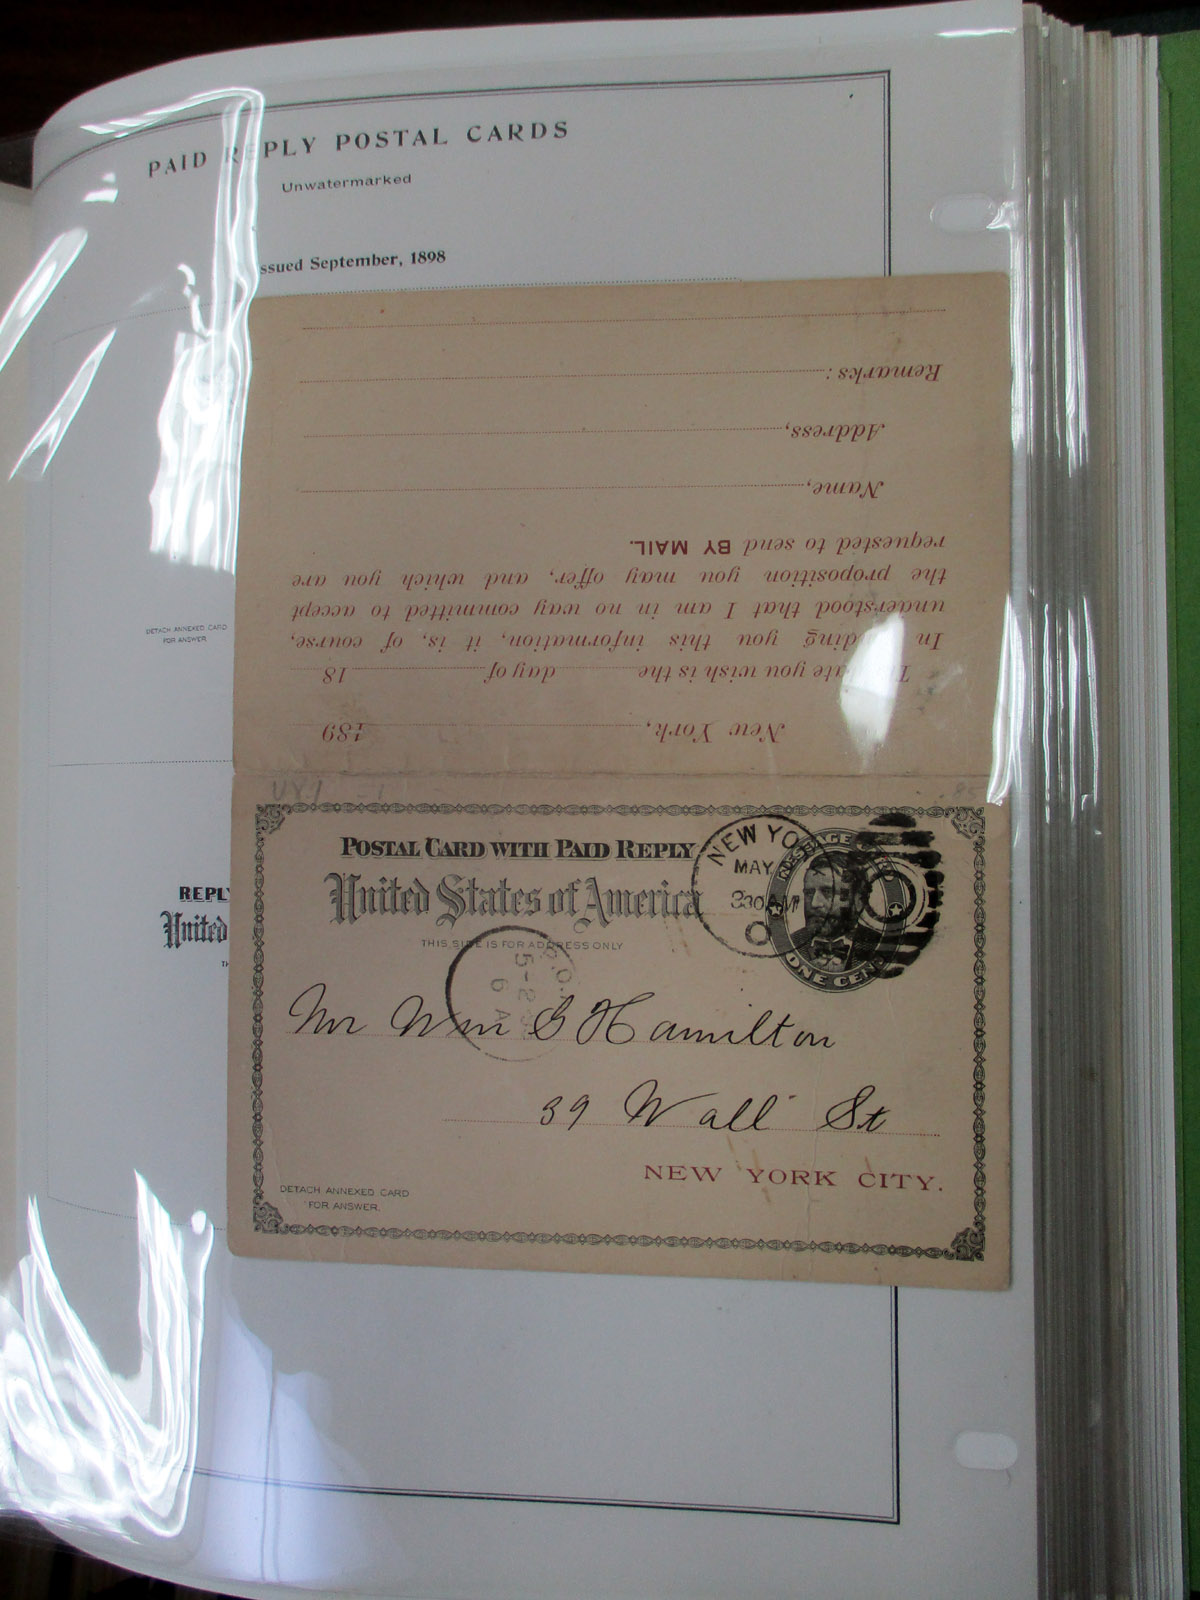 PAID REPLY POSTAL CARDS
Unwatermarked
ssued September, 1898
Remarks:
Address,
Name,
requested to send BY MAIL.
the proposition you may offer, and which you are
understood that I am in no way committed to accept
In ding you this information, it is, of course,
ate you wish is the day of 18
New York, 189
DETACH ANNEXED CARD
FOR ANSWER
POSTAL CARD WITH PAID REPLY
United States of America
THIS SIDE IS FOR ADDRESS ONLY
NEW YO
MAY
330 AM
O
MESSAGE
ONE CENT
REPLY
United
TH
P.O.
5-2
6 A
Mr Wm G Hamilton
39 Wall St
NEW YORK CITY.
DETACH ANNEXED CARD
FOR ANSWER.